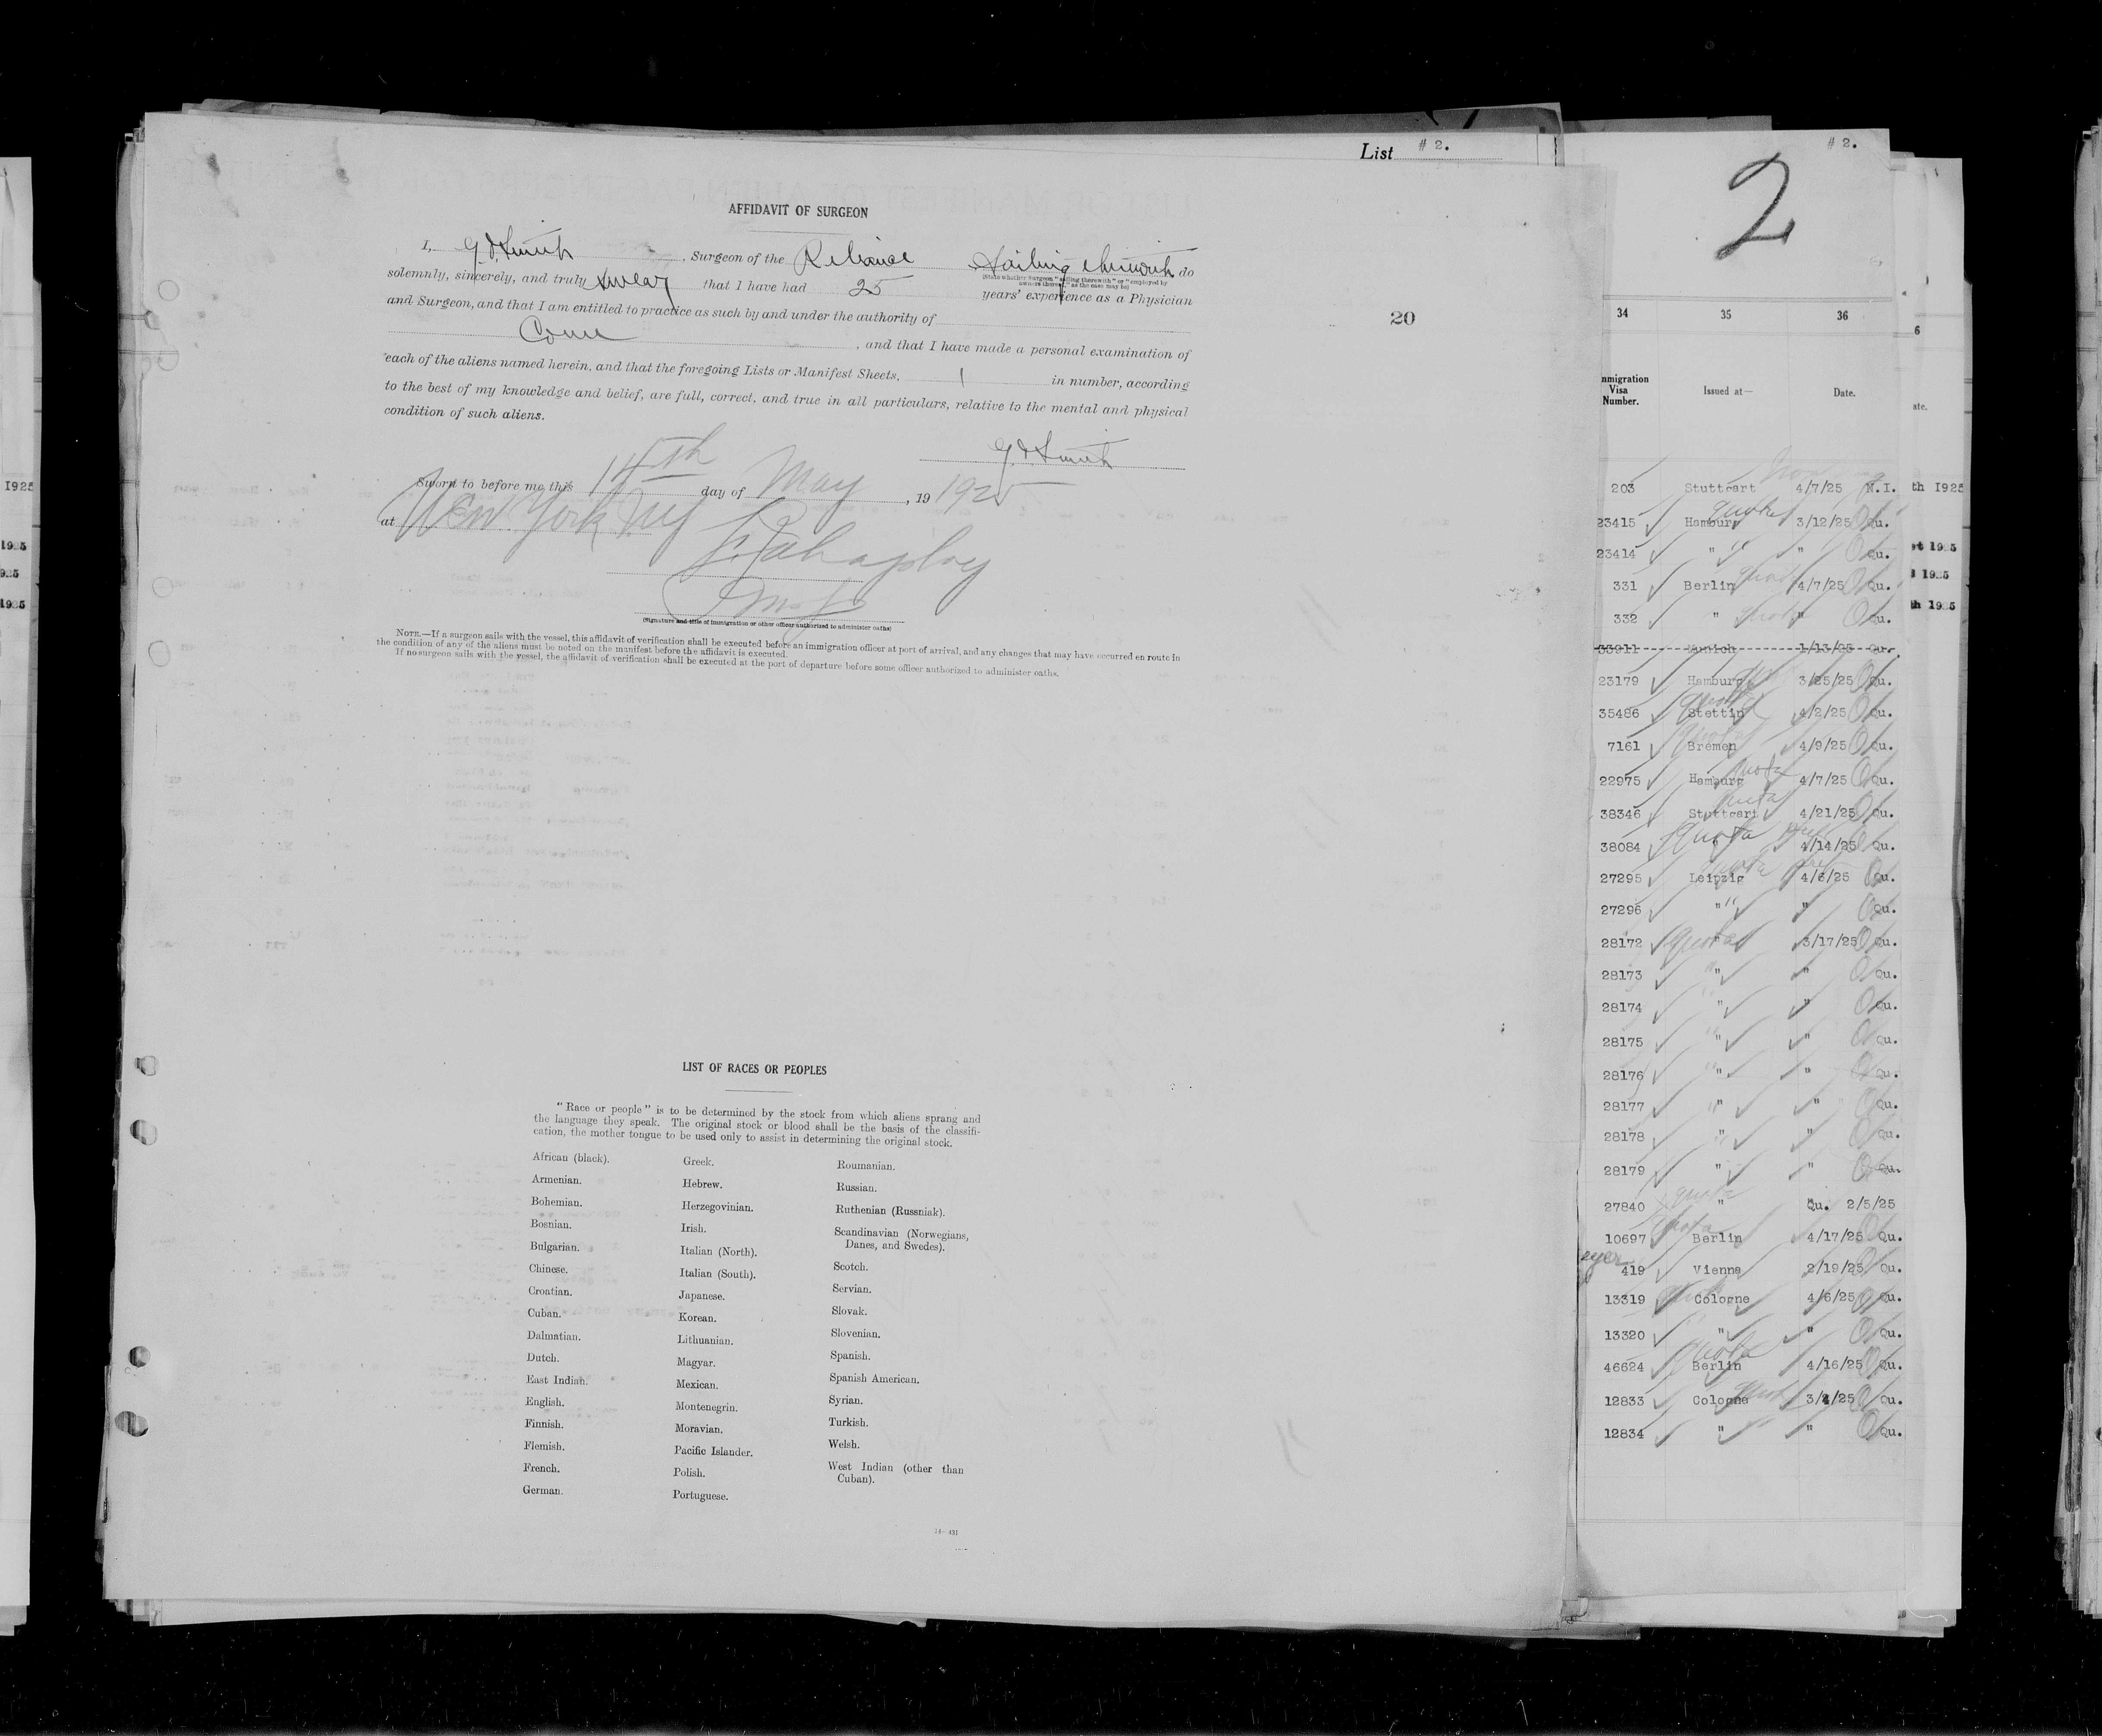 List # 2.
# 2.
2
AFFIDAVIT OF SURGEON
I, G. F. Smith, Surgeon of the Reliance Sailing therewith do
(State whether surgeon "sailing therewith" or "employed by owners thereof," as the case may be)
solemnly, sincerely, and truly swear that I have had 25 years' experience as a Physician
and Surgeon, and that I am entitled to practice as such by and under the authority of
Conn , and that I have made a personal examination of
each of the aliens named herein, and that the foregoing Lists or Manifest Sheets, 1 in number, according
to the best of my knowledge and belief, are full, correct, and true in all particulars, relative to the mental and physical
condition of such aliens.
20
Sworn to before me this 14th day of May , 19 1925
at New York NY
(Signature and title of immigration or other officer authorized to administer oaths)
NOTE.—If a surgeon sails with the vessel, this affidavit of verification shall be executed before an immigration officer at port of arrival, and any changes that may have occurred en route in
the condition of any of the aliens must be noted on the manifest before the affidavit is executed.
If no surgeon sails with the vessel, the affidavit of verification shall be executed at the port of departure before some officer authorized to administer oaths.
LIST OF RACES OR PEOPLES
"Race or people" is to be determined by the stock from which aliens sprang and
the language they speak. The original stock or blood shall be the basis of the classifi-
cation, the mother tongue to be used only to assist in determining the original stock.
African (black).
Armenian.
Bohemian.
Bosnian.
Bulgarian.
Chinese.
Croatian.
Cuban.
Dalmatian.
Dutch.
East Indian.
English.
Finnish.
Flemish.
French.
German.
Greek.
Hebrew.
Herzegovinian.
Irish.
Italian (North).
Italian (South).
Japanese.
Korean.
Lithuanian.
Magyar.
Mexican.
Montenegrin.
Moravian.
Pacific Islander.
Polish.
Portuguese.
Roumanian.
Russian.
Ruthenian (Russniak).
Scandinavian (Norwegians,
Danes, and Swedes).
Scotch.
Servian.
Slovak.
Slovenian.
Spanish.
Spanish American.
Syrian.
Turkish.
Welsh.
West Indian (other than
Cuban).
34 35 36
mmigration Visa Number. Issued at— Date.
203 Stuttgart 4/7/25 N.I.
23415 Hamburg 3/12/25 Qu.
23414 " " Qu.
331 Berlin 4/7/25 Qu.
332 " " Qu.
33911 Munich 1/13/25 Qu.
23179 Hamburg 3/25/25 Qu.
35486 Stettin 4/2/25 Qu.
7161 Bremen 4/9/25 Qu.
22975 Hamburg 4/7/25 Qu.
38346 Stuttgart 4/21/25 Qu.
38084 " 4/14/25 Qu.
27295 Leipzig 4/6/25 Qu.
27296 " " Qu.
28172 " 3/17/25 Qu.
28173 " " Qu.
28174 " " Qu.
28175 " " Qu.
28176 " " Qu.
28177 " " Qu.
28178 " " Qu.
28179 " " Qu.
27840 " Qu. 2/5/25
10697 Berlin 4/17/25 Qu.
419 Vienna 2/19/25 Qu.
13319 Cologne 4/6/25 Qu.
13320 " " Qu.
46624 Berlin 4/16/25 Qu.
12833 Cologne 3/4/25 Qu.
12834 " " Qu.